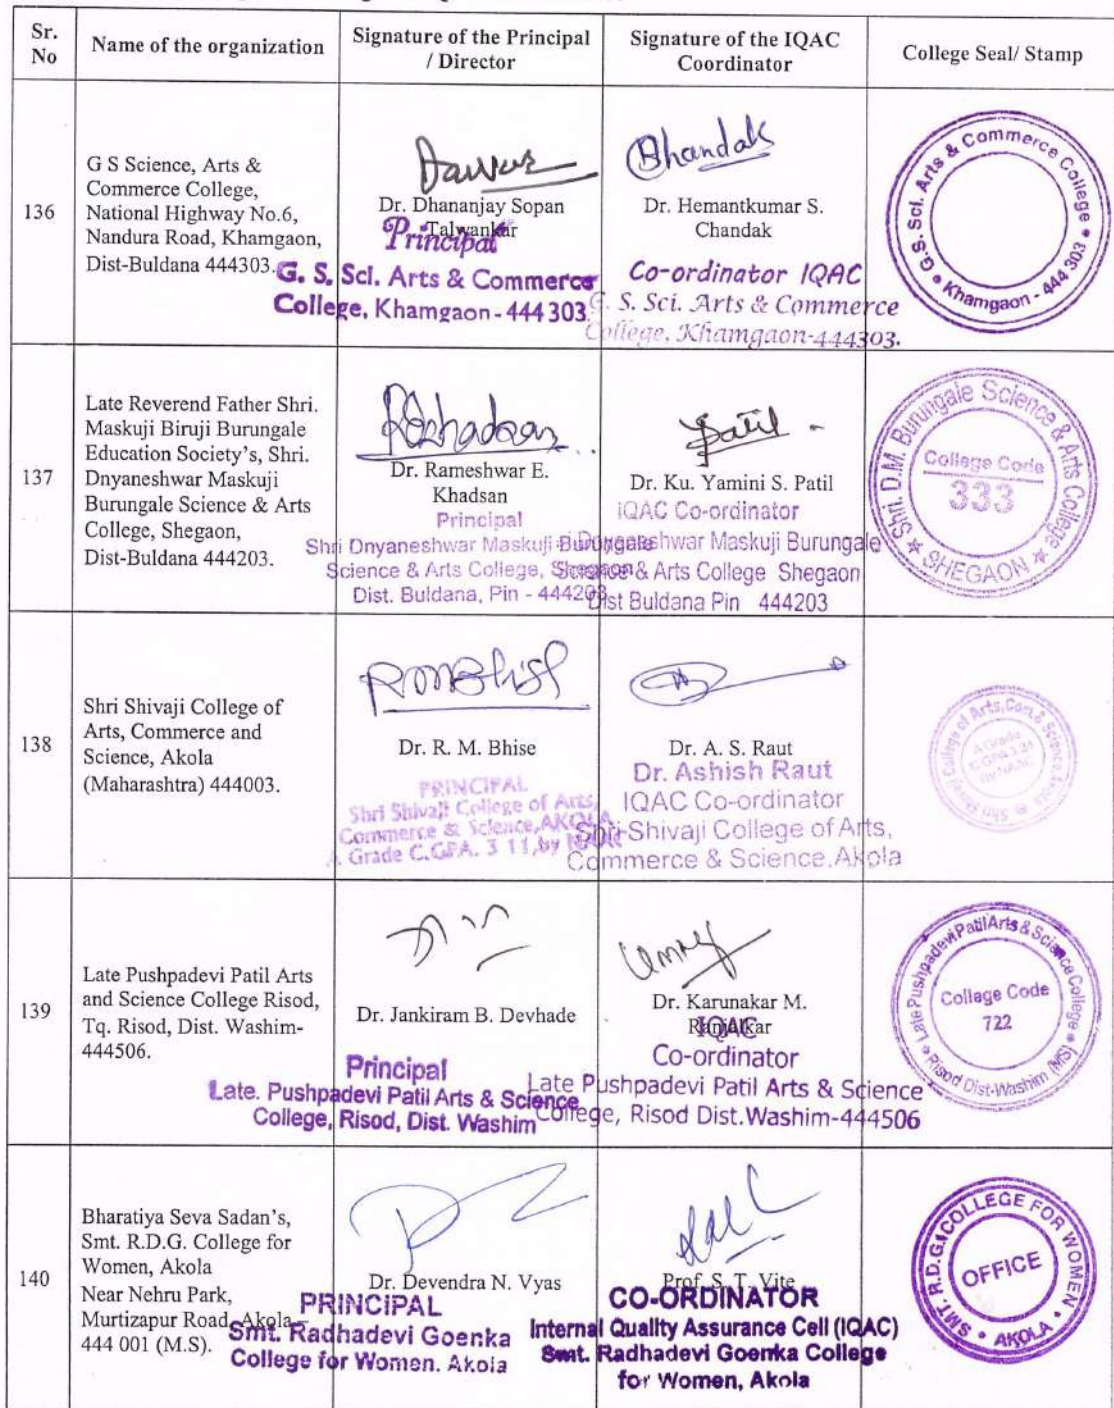 Sr. No
Name of the organization
Signature of the Principal / Director
Signature of the IQAC Coordinator
College Seal/ Stamp
136
G S Science, Arts &
Commerce College,
National Highway No.6,
Nandura Road, Khamgaon,
Dist-Buldana 444303.
Dr. Dhananjay Sopan
Talwankar
Principal
G. S. Sci. Arts & Commerce
College, Khamgaon - 444 303
Chandak
Dr. Hemantkumar S.
Chandak
Co-ordinator IQAC
G. S. Sci. Arts & Commerce
College, Khamgaon-444303.
G. S. Sci. Arts & Commerce College
Khamgaon - 444 303
137
Late Reverend Father Shri.
Maskuji Biruji Burungale
Education Society's, Shri.
Dnyaneshwar Maskuji
Burungale Science & Arts
College, Shegaon,
Dist-Buldana 444203.
Dr. Rameshwar E.
Khadsan
Principal
Shri Dnyaneshwar Maskuji Burungale
Science & Arts College, Shegaon
Dist. Buldana, Pin - 444203
Patil
Dr. Ku. Yamini S. Patil
IQAC Co-ordinator
Dnyaneshwar Maskuji Burungale
Science & Arts College Shegaon
Dist Buldana Pin 444203
Shri. D.M. Burungale Science & Arts College
College Code
333
SHEGAON
138
Shri Shivaji College of
Arts, Commerce and
Science, Akola
(Maharashtra) 444003.
RMBhise
Dr. R. M. Bhise
PRINCIPAL
Shri Shivaji College of Arts,
Commerce & Science, AKOLA
A Grade C.GPA. 3 11, by
Dr. A. S. Raut
Dr. Ashish Raut
IQAC Co-ordinator
Shri Shivaji College of Arts,
Commerce & Science. Akola
Shri Shivaji College of Arts, Com. & Science, Akola
A Grade
C GPA 3.11
by NAAC
139
Late Pushpadevi Patil Arts
and Science College Risod,
Tq. Risod, Dist. Washim-
444506.
Dr. Jankiram B. Devhade
Principal
Late. Pushpadevi Patil Arts & Science
College, Risod, Dist. Washim
Dr. Karunakar M.
IQAC
Co-ordinator
Late Pushpadevi Patil Arts & Science
College, Risod Dist.Washim-444506
Late Pushpadevi Patil Arts & Science College
College Code
722
Risod Dist-Washim (MS)
140
Bharatiya Seva Sadan's,
Smt. R.D.G. College for
Women, Akola
Near Nehru Park,
Murtizapur Road, Akola
444 001 (M.S).
Dr. Devendra N. Vyas
PRINCIPAL
Smt. Radhadevi Goenka
College for Women. Akola
Prof. S. T. Vite
CO-ORDINATOR
Internal Quality Assurance Cell (IQAC)
Smt. Radhadevi Goenka College
for Women, Akola
SMT. R.D.G. COLLEGE FOR WOMEN
OFFICE
AKOLA